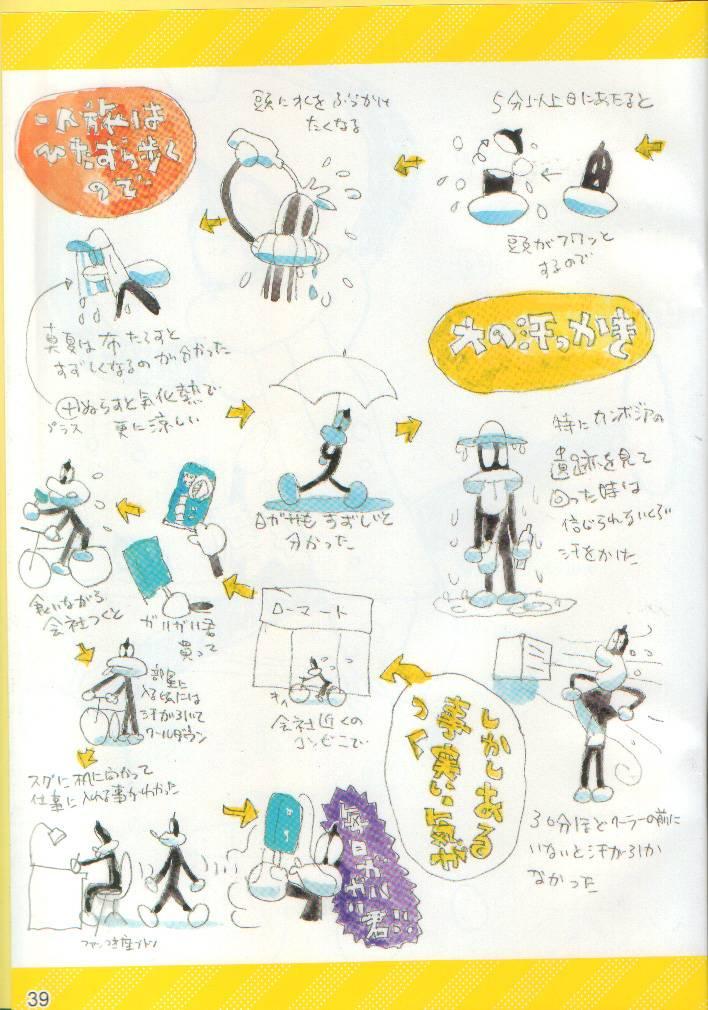 5分以上日にあたると
頭がフワッと
するので
頭に水をぶっかけ
たくなる
一人旅は
ひたすら歩く
ので
真夏は布たらすと
すずしくなるのが分かった
⊕ぬらすと気化熱で
プラス
更に涼しい
日ガサもすずしいと
分かった
大の汗っかき
特にカンボジアの
遺跡を見て
回った時は
信じられないくらい
汗をかいた
30分ほどクーラーの前に
いないと汗が引か
なかった
しかしある
事実に気が
つく
ローマート
会社近くの
コンビニで
ガリガリ君
買って
食いながら
会社つくと
部屋に
入る頃には
汗が引いて
クールダウン
スグに机に向かって
仕事に入れる事がわかった
ファンつき座ブトン
毎日ガリガリ君!!
39